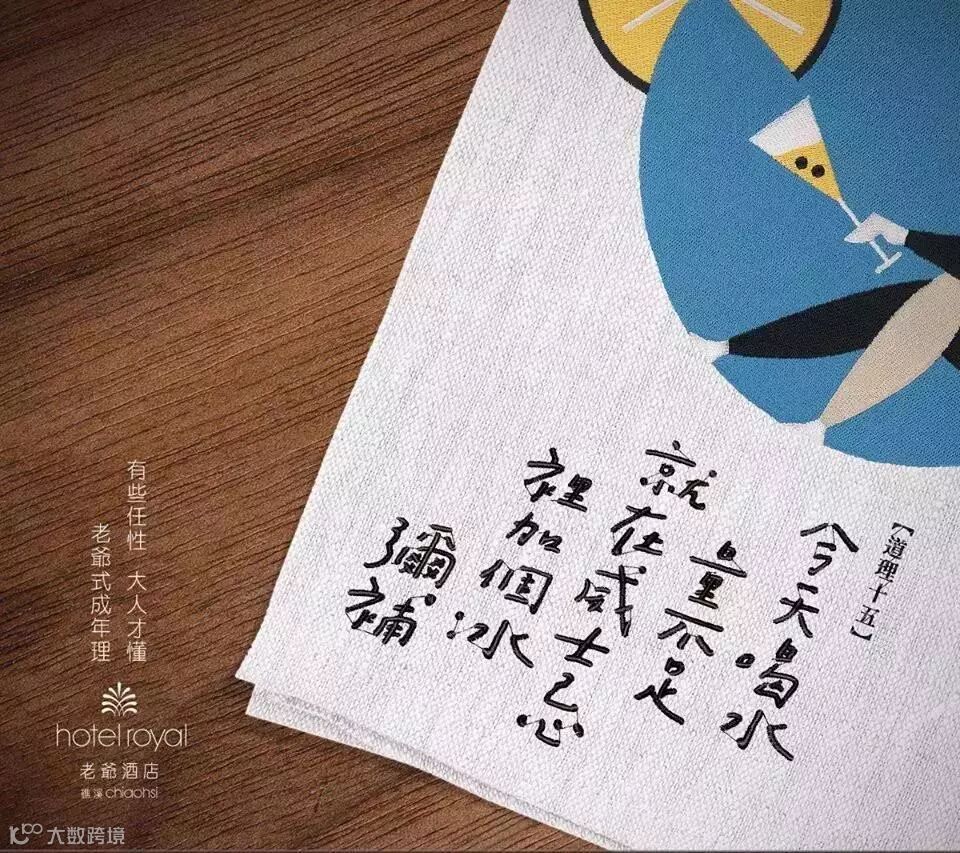 【道理十五】
今天喝水
量不足
就在威士忌
裡加個冰
彌補
有些任性 大人才懂
老爺式成年理
hotel royal
老爺酒店
礁溪 chiaohsi
大数跨境